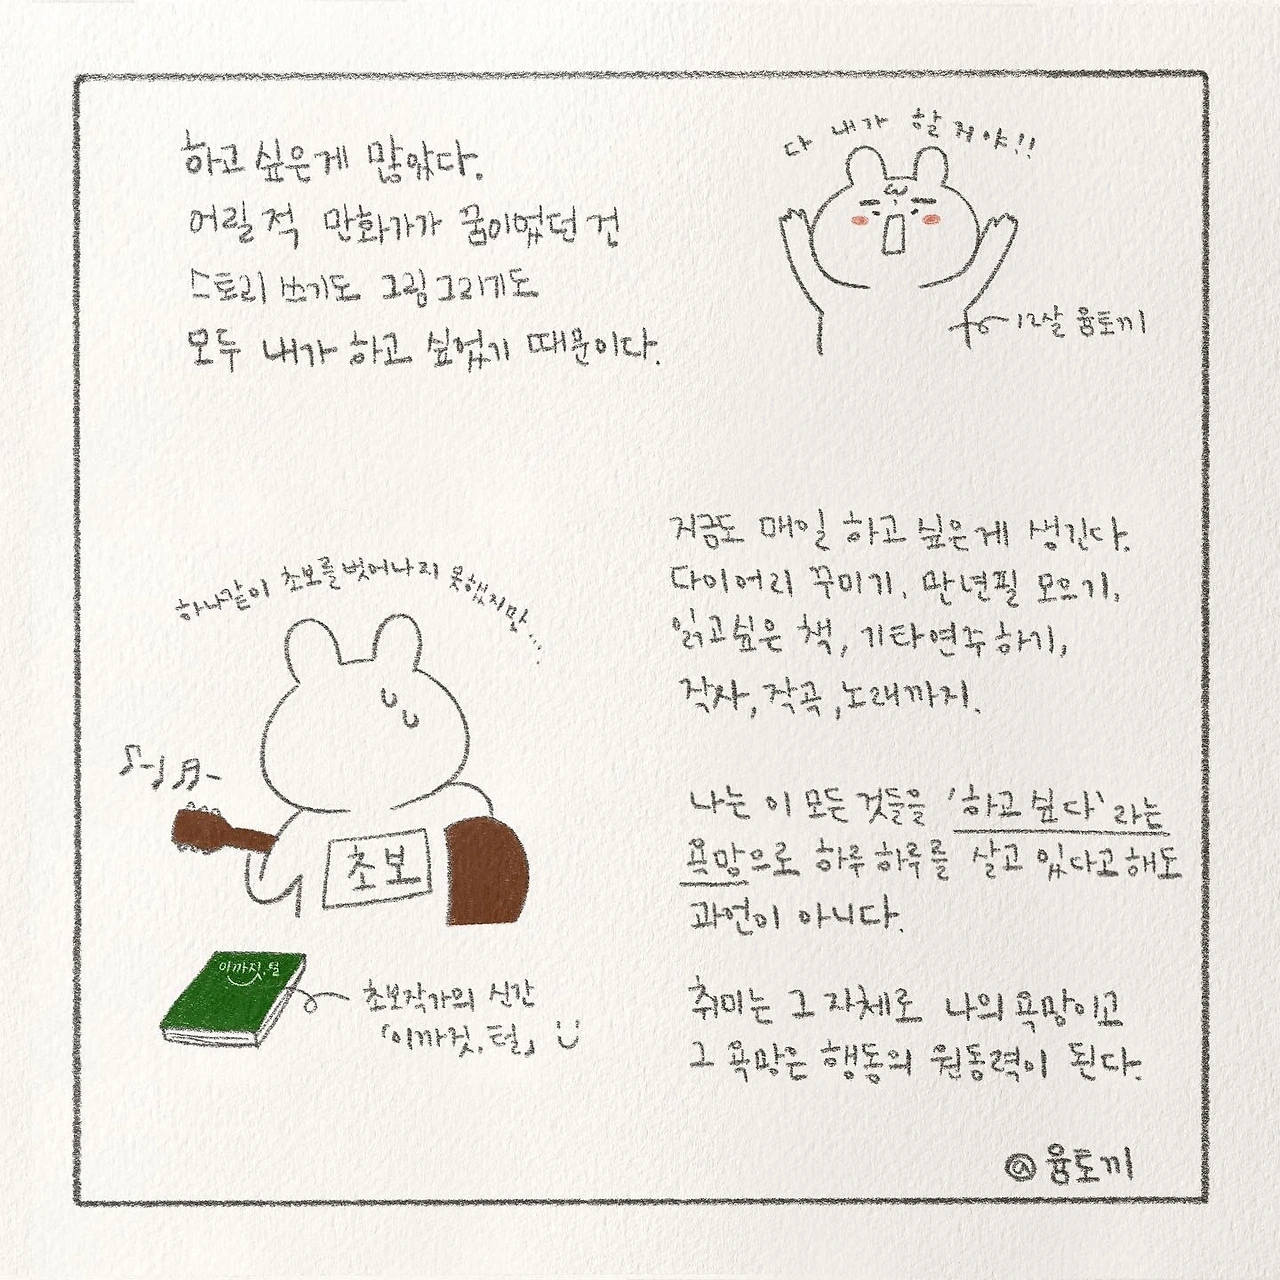 하고 싶은게 많았다.
어릴 적 만화가가 꿈이었던 건
스토리 쓰기도 그림그리기도
모두 내가 하고 싶었기 때문이다.
다 내가 할 거야!!
12살 윰토끼
하나같이 초보를 벗어나지 못했지만...
초보
이까짓, 털
초보작가의 신간
「이까짓, 털」
지금도 매일 하고 싶은게 생긴다.
다이어리 꾸미기, 만년필 모으기,
읽고싶은 책, 기타연주하기,
작사, 작곡, 노래까지.
나는 이 모든 것들을 '하고 싶다'라는
욕망으로 하루하루를 살고 있다고해도
과언이 아니다.
취미는 그 자체로 나의 욕망이고
그 욕망은 행동의 원동력이 된다.
@윰토끼